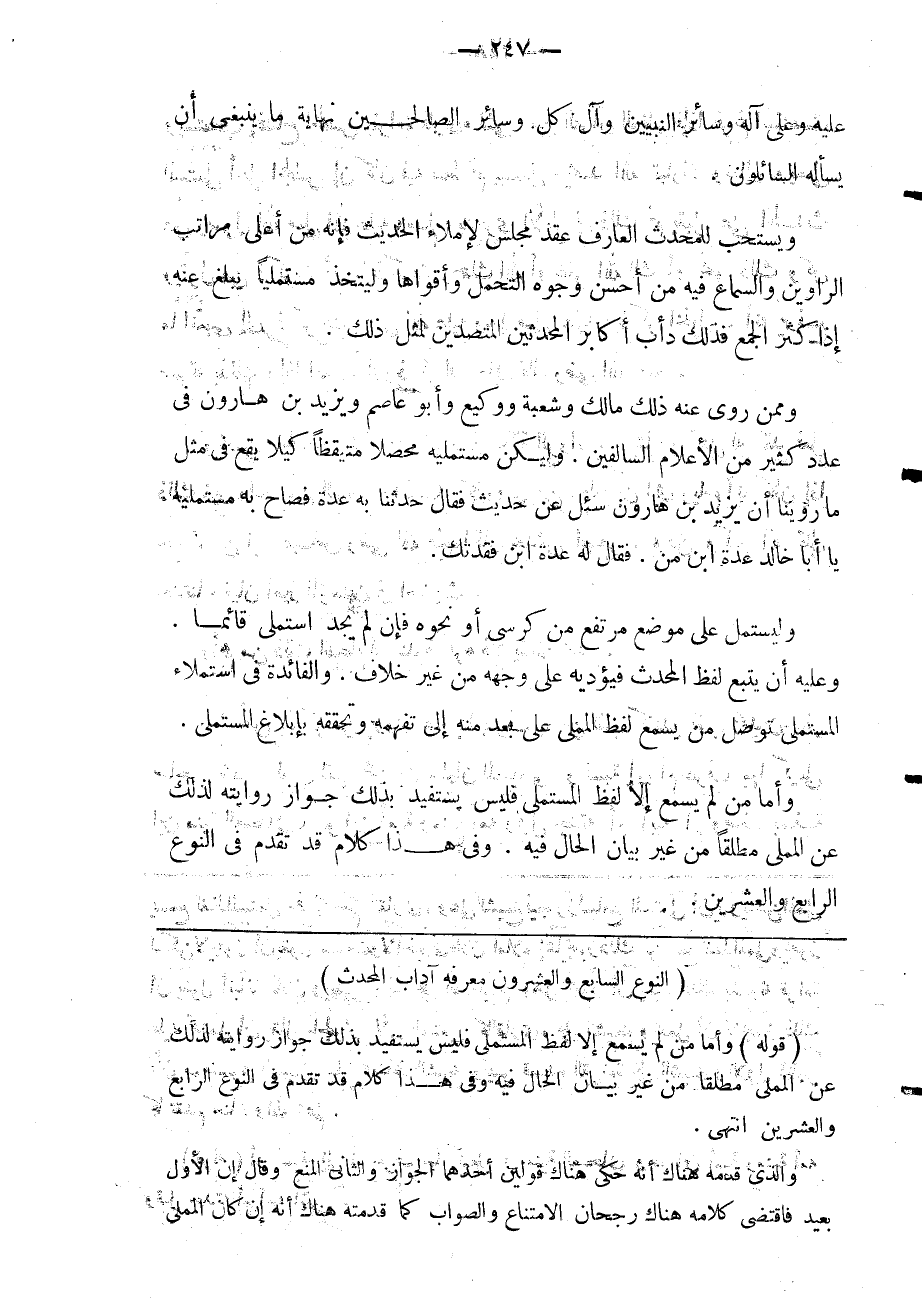 — ٢٤٧ —
عليه وعلى آله وسائر النبيين وآل كل وسائر الصالحـــين نهاية ما ينبغى أن
يسأله السائلون
ويستحب للمحدث العارف عقد مجلس لإملاء الحديث فإنه من أعلى مراتب
الراوين والسماع فيه من أحسن وجوه التحمل وأقواها وليتخذ مستملياً يبلغ عنه
إذا كثر الجمع فذلك دأب أكابر المحدثين المتصدين لمثل ذلك .
وممن روى عنه ذلك مالك وشعبة ووكيع وأبو عاصم ويزيد بن هـارون فى
عدد كثير من الأعلام السالفين . وليـكن مستمليه محصلا متيقظاً كيلا يقع فى مثل
ما روينا أن يزيد بن هارون سئل عن حديث فقال حدثنا به عدة فصاح به مستمليه
يا أبا خالد عدة ابن من . فقال له عدة ابن فقدتك .
وليستمل على موضع مرتفع من كرسى أو نحوه فإن لم يجد استملى قائمـا .
وعليه أن يتبع لفظ المحدث فيؤديه على وجهه من غير خلاف . والفائدة فى استملاء
المستملى توصل من يسمع لفظ المملى على بعد منه إلى تفهمه وتحققه بإبلاغ المستملى .
وأما من لم يسمع إلا لفظ المستملى فليس يستفيد بذلك جـواز روايته لذلك
عن المملى مطلقاً من غير بيان الحال فيه . وفى هـــذا كلام قد تقدم فى النوع
الرابع والعشرين .
( النوع السابع والعشرون معرفه آداب المحدث )
( قوله ) وأما من لم يسمع إلا لفظ المستملى فليس يستفيد بذلك جواز روايته لذلك
عن المملى مطلقا من غير بيـان الحال فيه وفى هـــذا كلام قد تقدم فى النوع الرابع
والعشرين انتهى .
والذى قدمه هناك أنه حكى هناك قولين أحدهما الجواز والثانى المنع وقال إن الأول
بعيد فاقتضى كلامه هناك رجحان الامتناع والصواب كما قدمته هناك أنه إن كان المملى